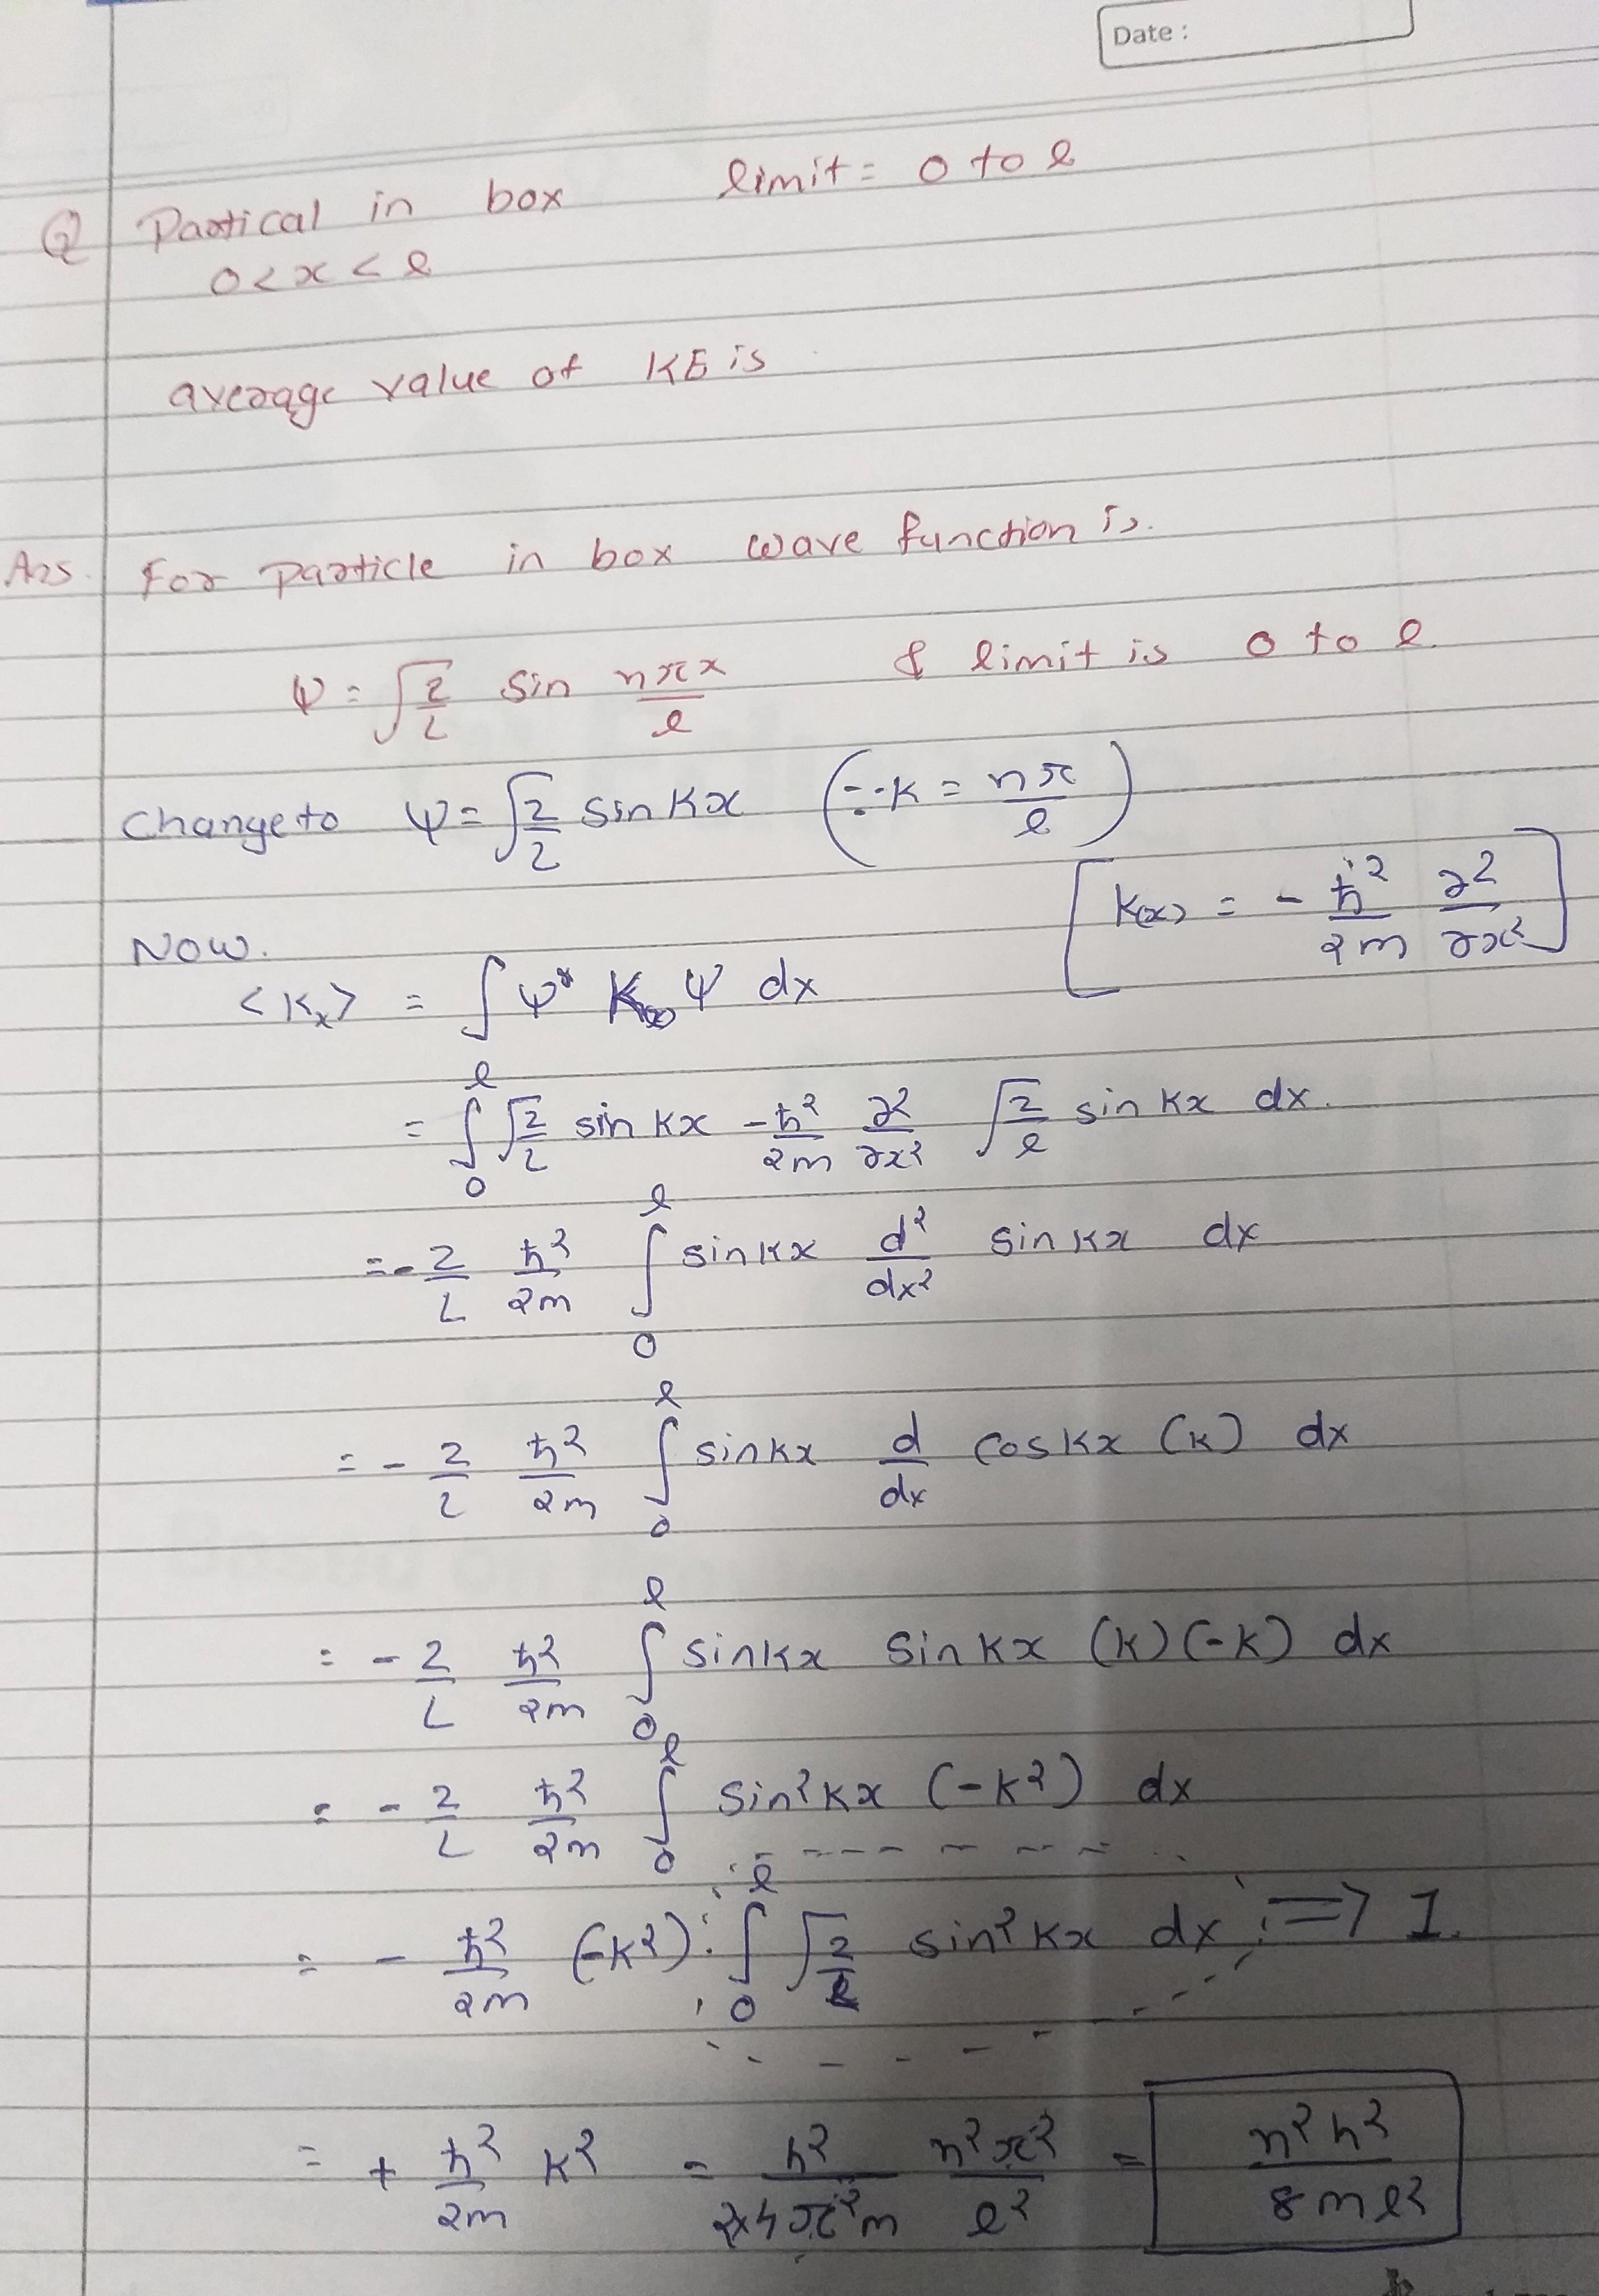 Date :
Q Partical in box limit = 0 to l
0 < x < l
average value of KE is
Ans. For Particle in box wave function is.
ψ = √2/L sin nπx/l & limit is 0 to l.
Change to ψ = √2/L sin kx (∵ k = nπ/l)
[K(x) = - ħ²/2m ∂²/∂x²]
Now.
<Kx> = ∫ ψ* K(x) ψ dx
= ∫₀ˡ √2/L sin kx - ħ²/2m ∂²/∂x² √2/l sin kx dx.
= - 2/L ħ²/2m ∫₀ˡ sin kx d²/dx² sin kx dx
= - 2/L ħ²/2m ∫₀ˡ sin kx d/dx cos kx (k) dx
= - 2/L ħ²/2m ∫₀ˡ sin kx sin kx (k) (-k) dx
= - 2/L ħ²/2m ∫₀ˡ sin² kx (-k²) dx
= - ħ²/2m (-k²) ∫₀ˡ √2/l sin² kx dx ⇒ 1.
= + ħ²/2m k² = h²/2x4π²m n²π²/l² = n²h²/8ml²